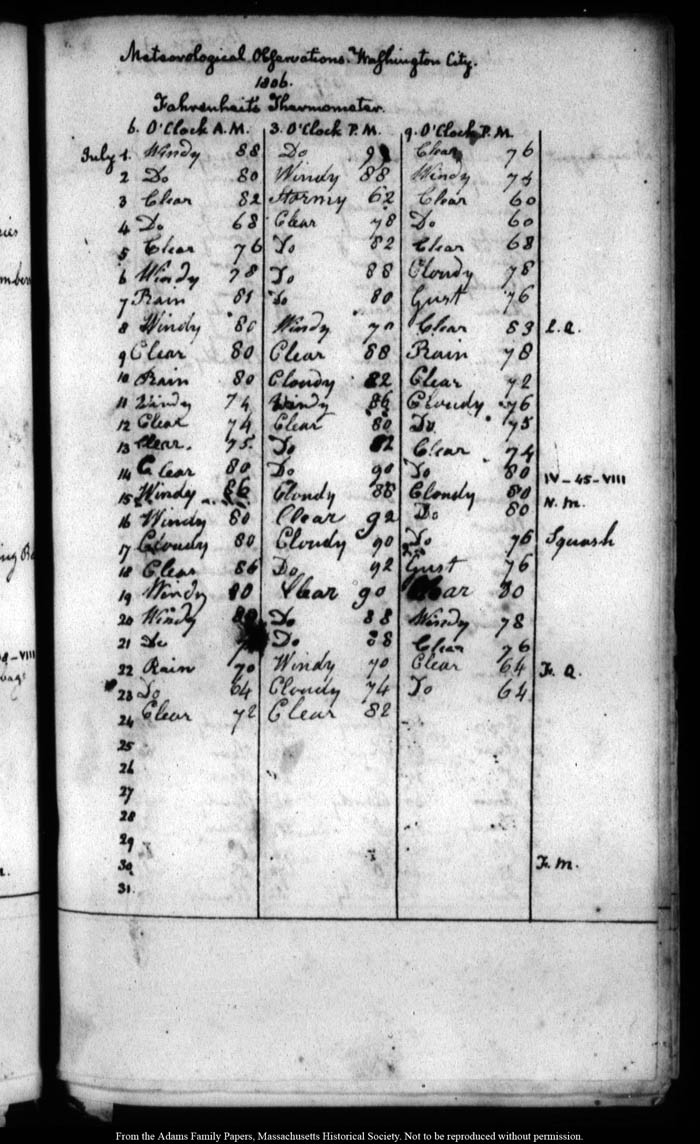 Meteorological Observations. Washington City.
1806.
Fahrenheit's Thermometer.
6. O'Clock A.M. 3. O'Clock P.M. 9. O'Clock P.M.
July 1. Windy 88 Do Clear 76
2 Do 80 Windy 88 Windy 74
3 Clear 82 Stormy 62 Clear 60
4 Do 68 Clear 78 Do 60
5 Clear 76 Do 82 Clear 68
6 Windy 78 Do 88 Cloudy 78
7 Rain 81 Do 80 Gust 76
8 Windy 80 Windy 70 Clear 83 L.Q.
9 Clear 80 Clear 88 Rain 78
10 Rain 80 Cloudy 82 Clear 72
11 Windy 74 Windy 86 Cloudy 76
12 Clear 74 Clear 80 Do 75
13 Clear. 75 Do 82 Clear 74
14 Clear 80 Do 90 Do 80 IV-45-VIII
15 Windy 86 Cloudy 88 Cloudy 80 N.M.
16 Windy 80 Clear 92 Do 80
17 Cloudy 80 Cloudy 90 Do 76 Squash
18 Clear 86 Do 92 Gust 76
19 Windy 80 Clear 90 Clear 80
20 Windy Do 88 Windy 78
21 Do Do 88 Clear 76
22 Rain 70 Windy 70 Clear 64 F.Q.
23 Do 64 Cloudy 74 Do 64
24 Clear 72 Clear 82
25
26
27
28
29
30 F.M.
31.
From the Adams Family Papers, Massachusetts Historical Society. Not to be reproduced without permission.